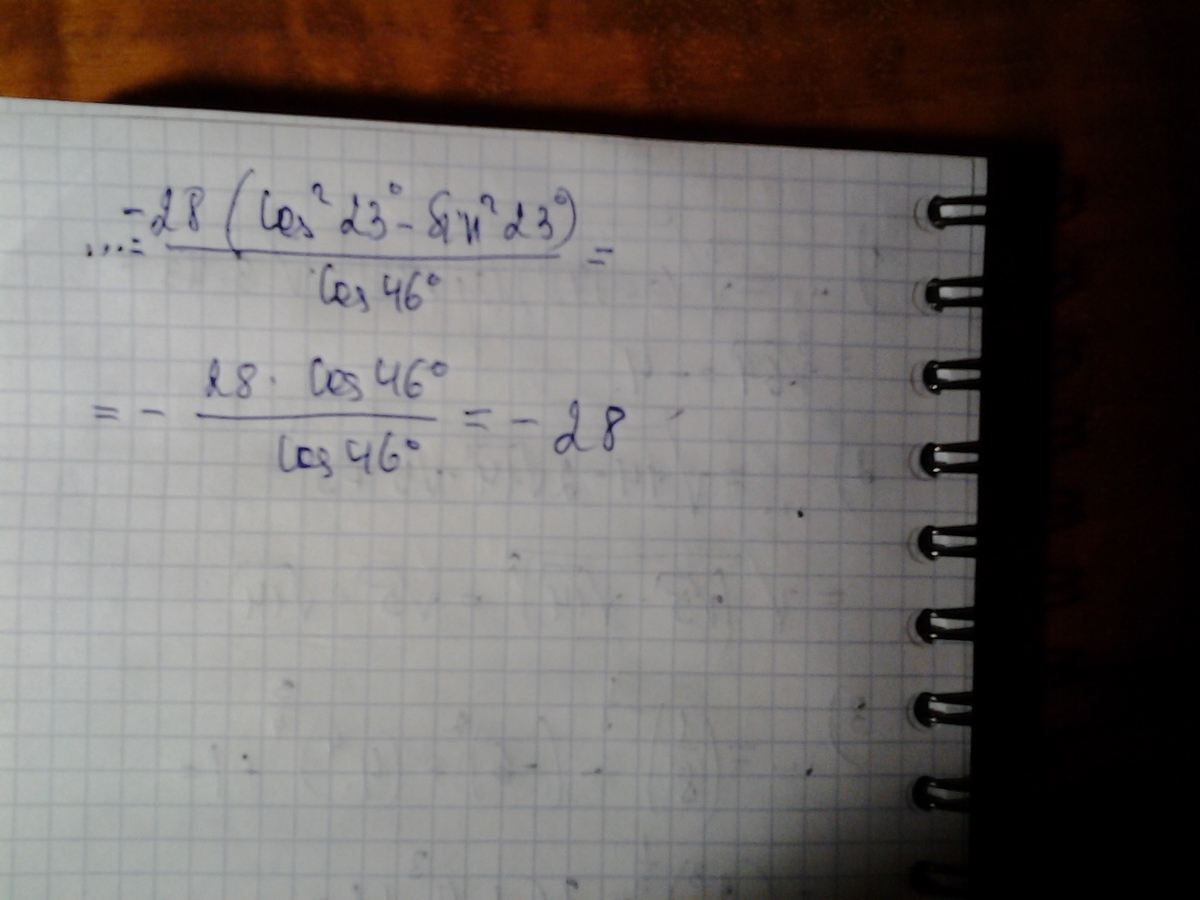 ...= -28 (cos² 23° - sin² 23°) =
cos 46°
= - 28 · cos 46° = - 28
cos 46°